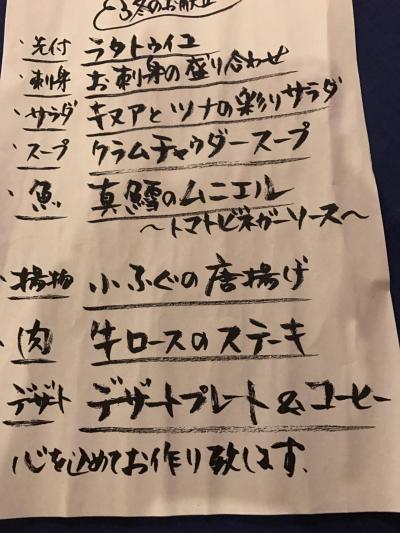 冬のお献立
・先付 ラタトゥイユ
・刺身 お刺身の盛り合わせ
・サラダ キヌアとツナの彩りサラダ
・スープ クラムチャウダースープ
・魚 真鱈のムニエル
～トマトビネガーソース～
・揚物 小ふぐの唐揚げ
・肉 牛ロースのステーキ
デザート デザートプレート&コーヒー
心を込めてお作り致します。